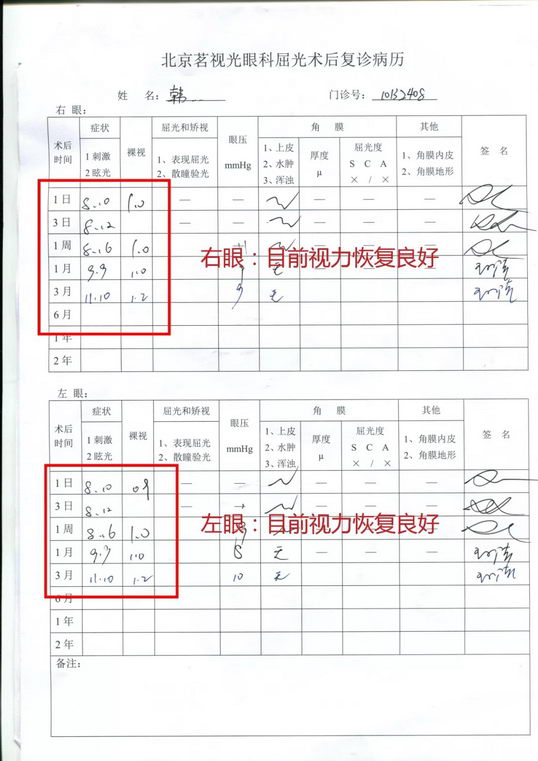 北京茗视光眼科屈光术后复诊病历
姓 名： 韩 门诊号： 10132408
右 眼：
术后时间 症状 1 刺激 2 眩光 裸视 屈光和矫视 1、表现屈光 2、散瞳验光 眼压 mmHg 角 膜 1、上皮 2、水肿 3、浑浊 厚度 μ 屈光度 S C A × / × 其他 1、角膜内皮 2、角膜地形 签 名
1 日 8.10 1.0 — — — — —
3 日 8.12 — — — — —
1 周 8.16 1.0 — — — — —
右眼：目前视力恢复良好
1 月 9.9 1.0
3 月 11.10 1.2 9 无
6 月
1 年
2 年
左 眼：
术后时间 症状 1 刺激 2 眩光 裸视 屈光和矫视 1、表现屈光 2、散瞳验光 眼压 mmHg 角 膜 1、上皮 2、水肿 3、浑浊 厚度 μ 屈光度 S C A × / × 其他 1、角膜内皮 2、角膜地形 签 名
1 日 8.10 0.9 — — — — —
3 日 8.12 — — — — —
左眼：目前视力恢复良好
1 周 8.16 1.0
1 月 9.9 1.0 8 无 — — —
3 月 11.10 1.2 10 无
6 月
1 年
2 年
备注：